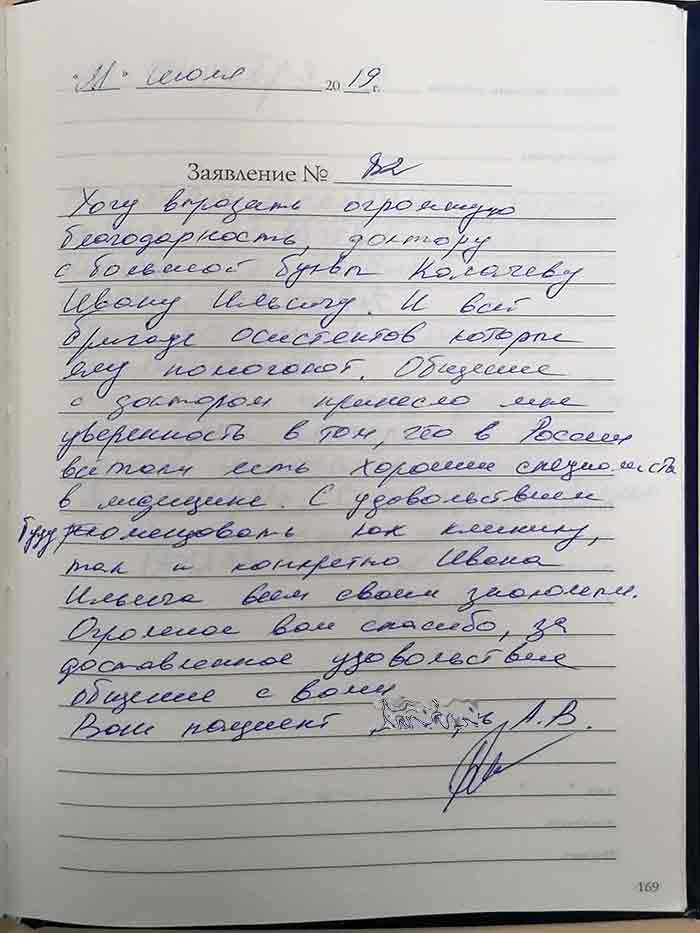 "11" июля 2019 г.
Заявление № 82
Хочу выразить огромную
благодарность, доктору
с большой буквы Калачеву
Ивану Ильичу. И всей
бригаде осистентов которые
ему помогают. Общение
с доктором принесло мне
уверенность в том, что в России
всетаки есть хорошие специалисты
в медицине. С удовольствием
буду рекомендовать как клинику,
так и конкретно Ивана
Ильича всем своим знакомым.
Огромное вам спасибо, за
доставленное удовольствие
общение с вами
Ваш пациент А.В.
169